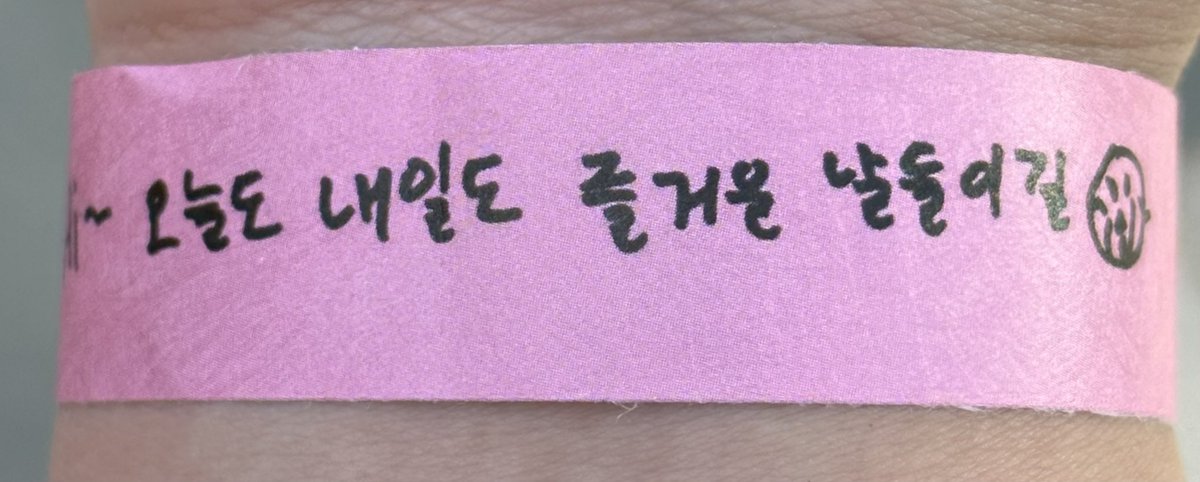 ~ 오늘도 내일도 즐거운 날들이길